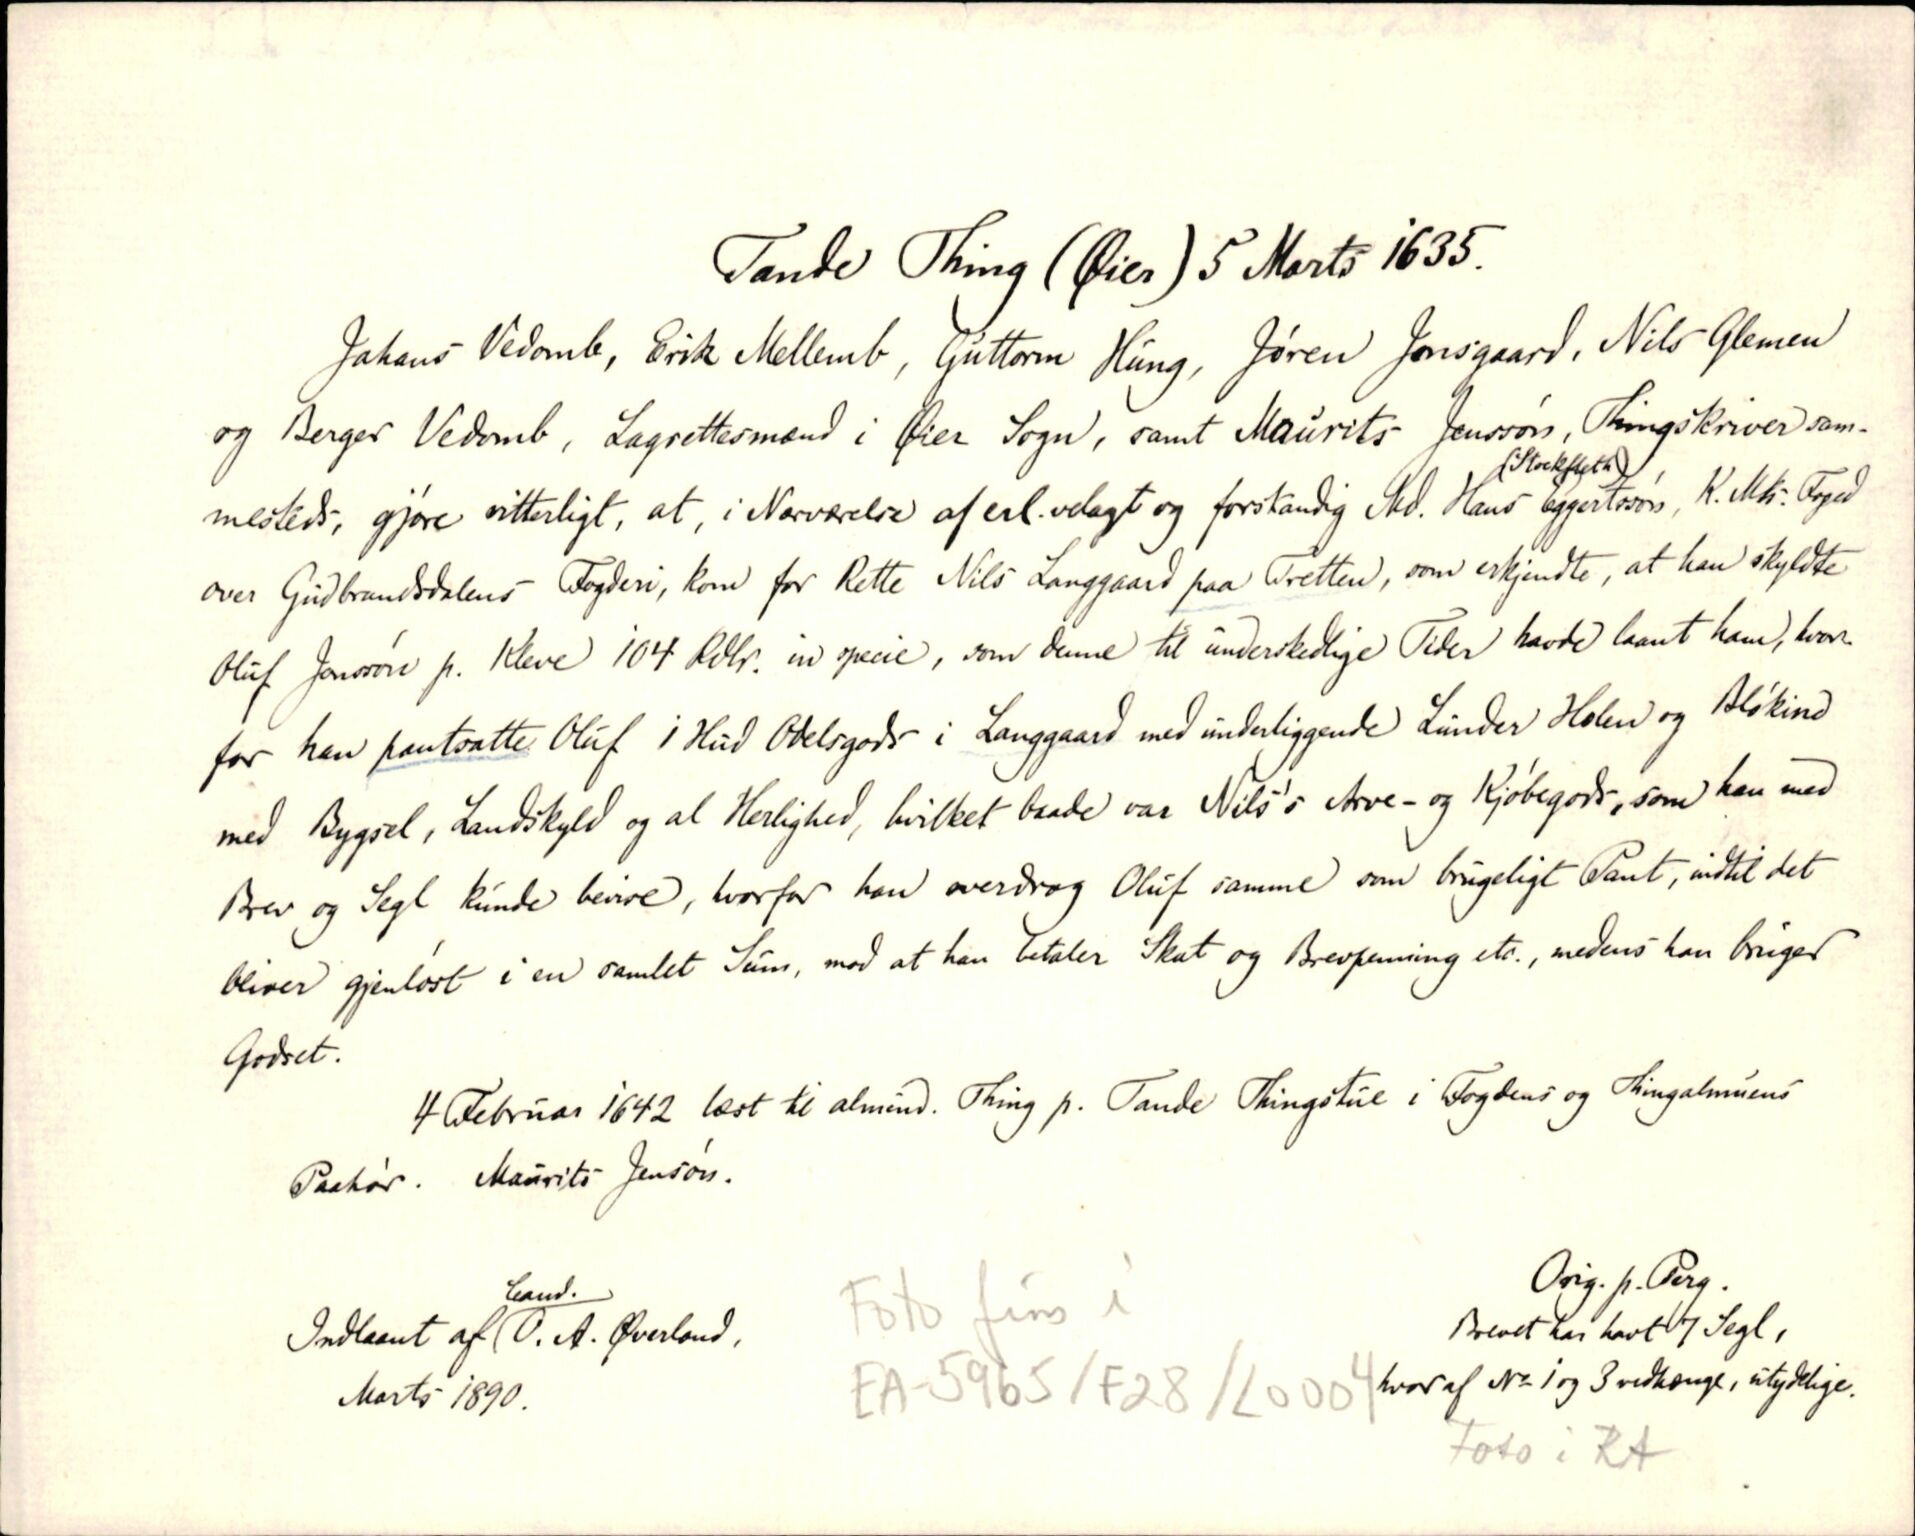 Tande Thing (Øier) 5 Marts 1635.
Johans Vedomb, Erik Mellemb, Guttorm Hung, Jören Jonsgaard, Nils Glemen
og Berger Vedomb, Lagrettesmænd i Øier Sogn, samt Maurits Jenssön, Thingskriver sam-
mesteds, gjöre vitterligt, at, i Nærværelse af erl. velagt og forstandig Md. Hans Eggertssön (Stockfleth), K. Mts. Foged
over Gudbrandsdalens Fogderi, kom for Rette Nils Langgaard paa Tretten, som erkjendte, at han skyldte
Oluf Jonssön p. Kleve 104 Rdlr. in specie, som denne til underskedlige Tider havde laant ham, hvor-
for han pantsatte Oluf 1 Hud Odelsgods i Langgaard med underliggende Lunder Holen og Blökind
med Bygsel, Landskyld og al Herlighed, hvilket baade var Nils's Arve- og Kjöbegods, som han med
Brev og Segl kunde bevise, hvorfor han overdrog Oluf samme som brugeligt Pant, indtil det
bliver gjenlöst i en samlet Sum, mod at han betaler Skat og Brevpenning etc., medens han bruger
Godset.
4 Februar 1642 læst til almind. Thing p. Tande Thingstue i Fogdens og Thingalmuens
Paahör. Maurits Jensön.
Indlaant af Cand. O. A. Øverland,
Marts 1890.
Orig. p. Perg.
Brevet har havt 7 Segl,
hvoraf No 1 og 3 vedhænge, utydelige.
Foto fins i
EA-5965/F28/L0004
Foto i RA